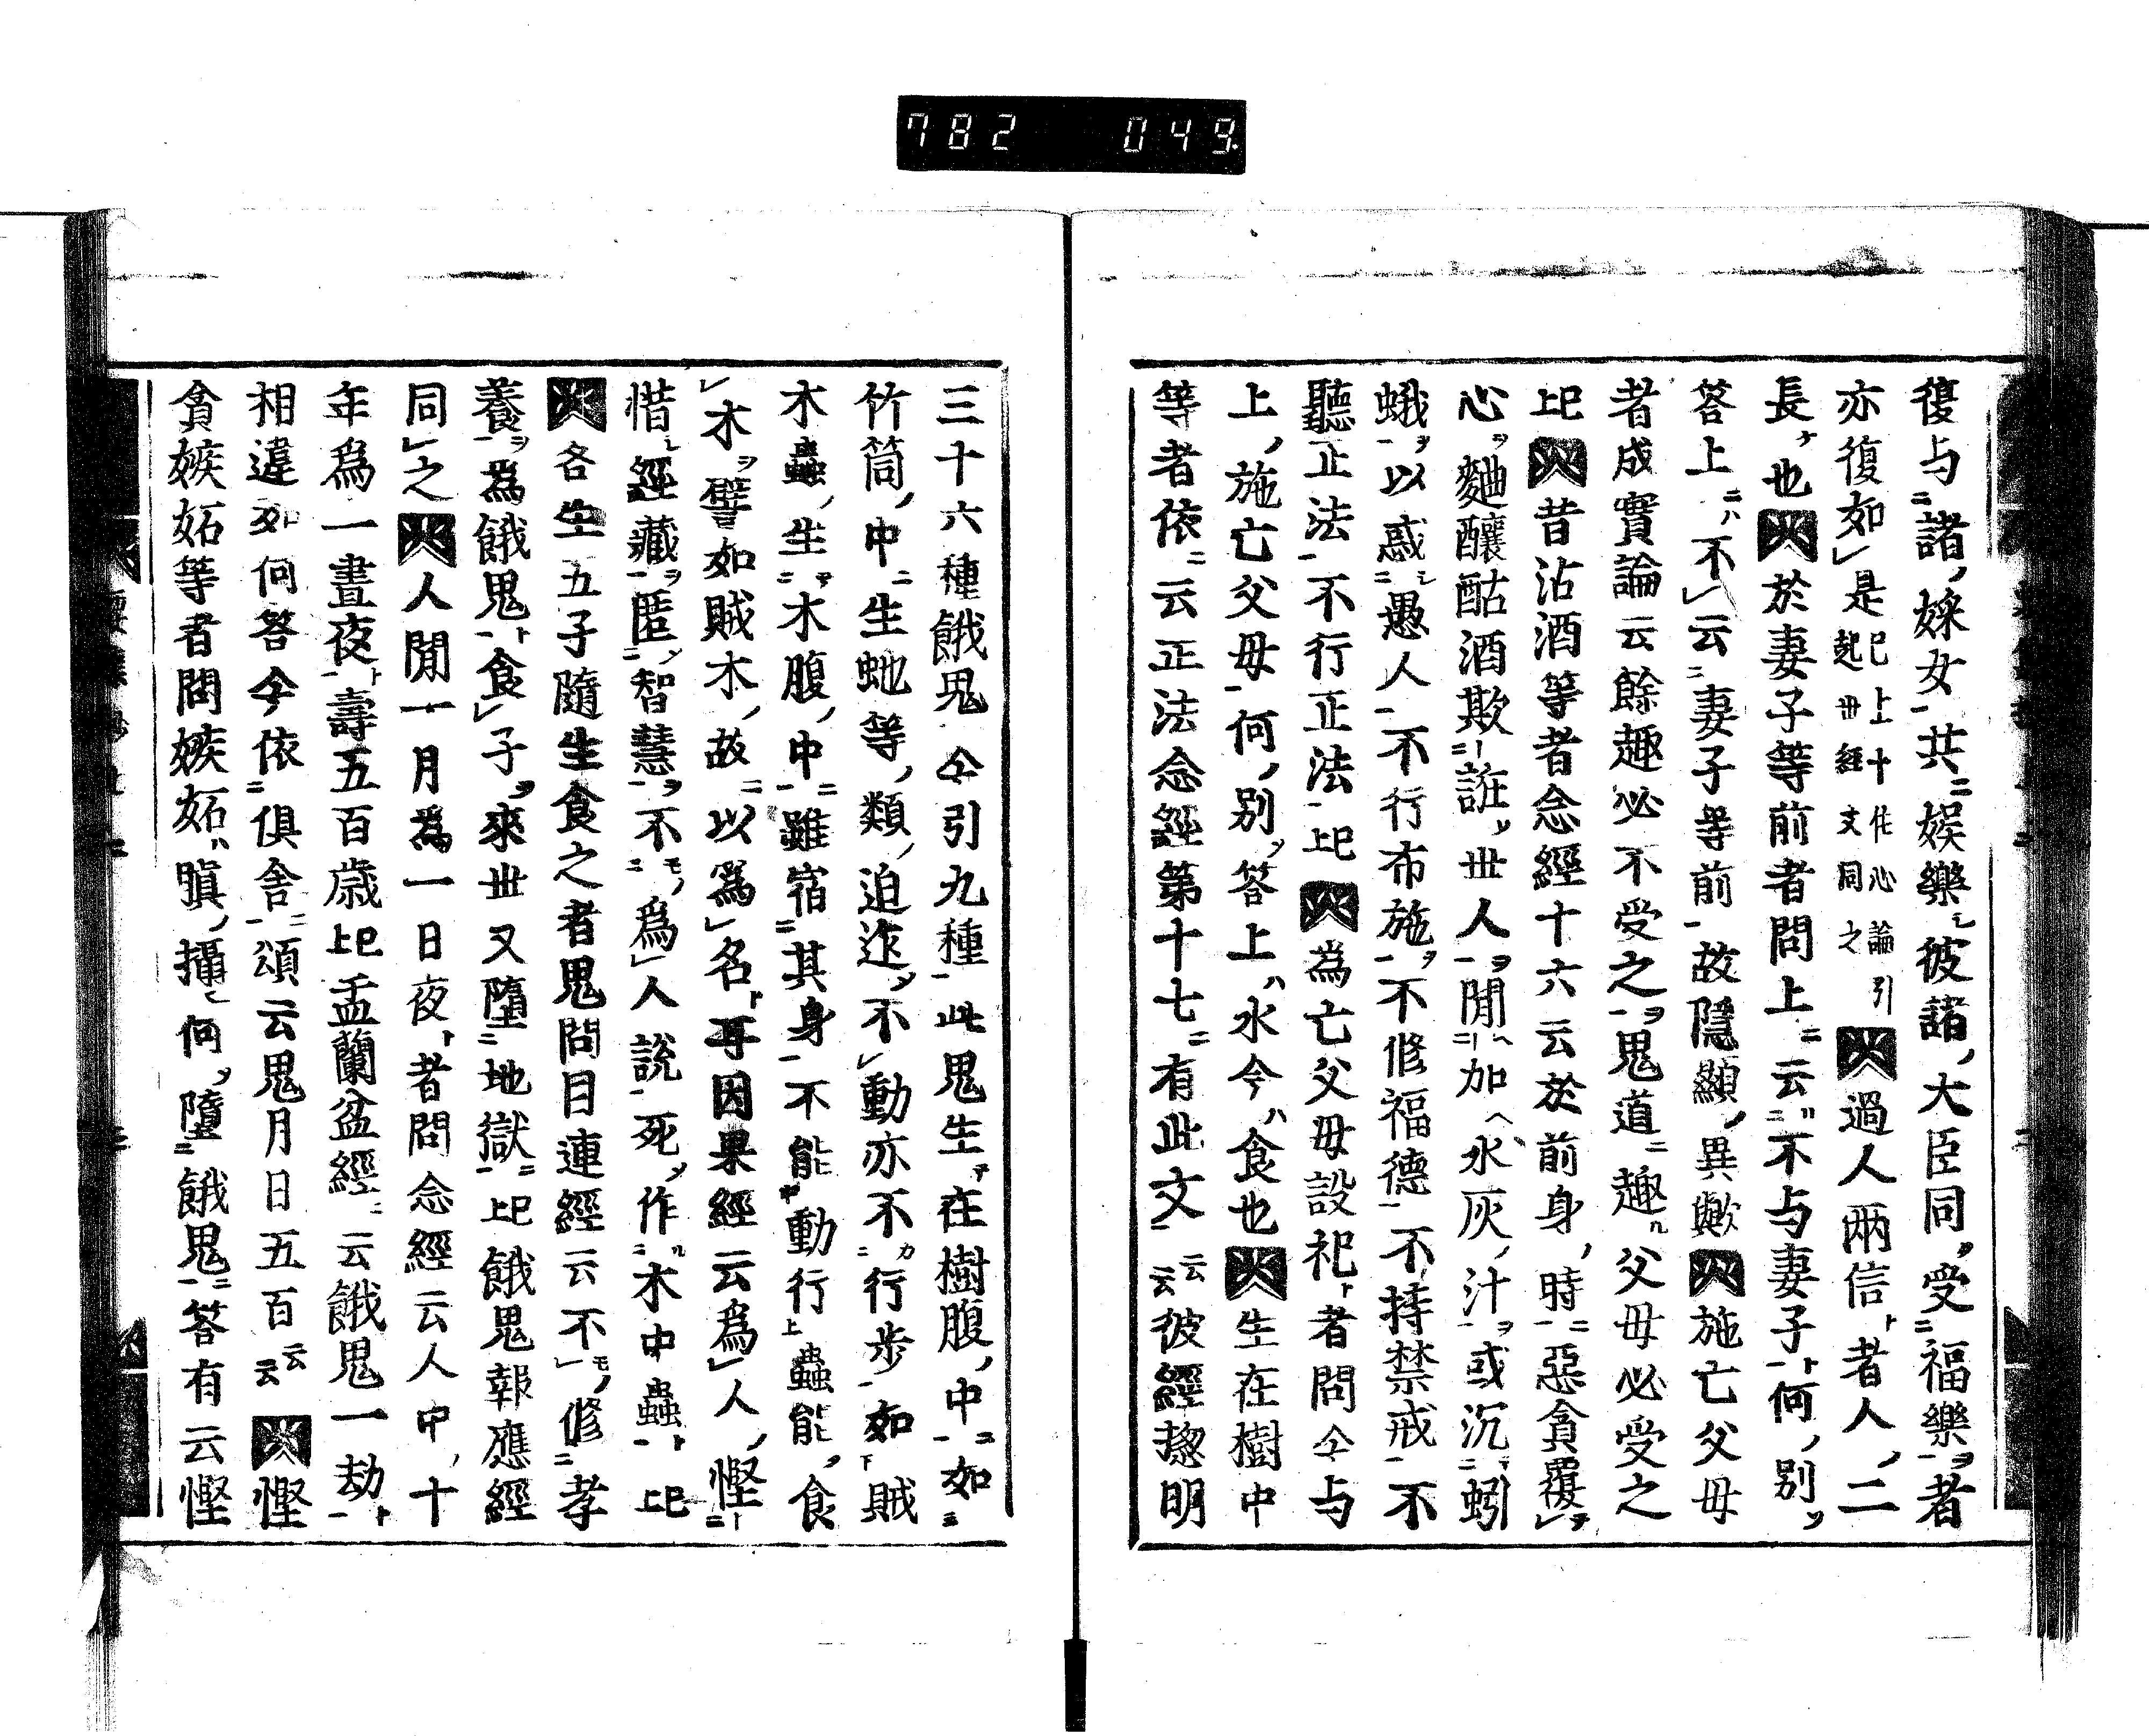 782 049
復与諸婇女共娯樂彼諸大臣同受福樂者
亦復如是已上十住心論引起世經文同之過人兩信者人二
長也於妻子等前者問上云不与妻子何別
答上不云妻子等前故隱顯異歟施亡父母
者成實論云餘趣必不受之鬼道趣父母必受之
上已昔沽酒等者念經十六云於前身時惡貪覆
心麹釀酤酒欺誑世人閒加水灰汁或沉蚓
蛾以惑愚人不行布施不修福德不持禁戒不
聽正法不行正法上已為亡父母設祀者問今与
上施亡父母何別答上水今食也生在樹中
等者依云正法念經第十七有此文云云彼經揔明
三十六種餓鬼今引九種此鬼生在樹腹中如
竹筒中生虵等類迫迮不動亦不行步如賊
木蟲生木腹中雖宿其身不能動行蟲能食
木譬如賊木故以爲名再因果經云爲人慳
惜經藏匿智慧不爲人說死作木中蟲上已
各生五子隨生食之者鬼問目連經云不修孝
養為餓鬼食子來世又墮地獄上已餓鬼報應經
同之人閒一月為一日夜者問念經云人中十
年爲一晝夜壽五百歲上已盂蘭盆經云餓鬼一劫
相違如何答今依俱舍頌云鬼月日五百云云慳
貪嫉妬等者問嫉妬瞋攝何墮餓鬼答有云慳